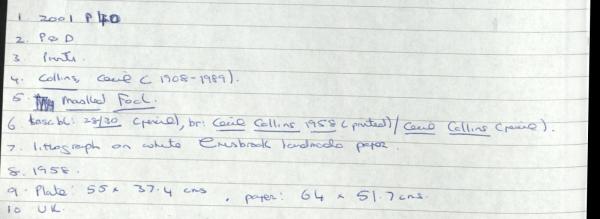 1 2001 P40
2. P&D
3 Prints.
4. Collins, Cecil (1908-1989).
5. Masked Fool.
6 bl: 28/30 (pencil), br: Cecil Collins 1958 (printed) / Cecil Collins (pencil).
7. lithograph on white handmade paper.
8. 1958.
9. Plate: 55 x 37.4 cms, paper: 64 x 51.7 cms.
10 UK.